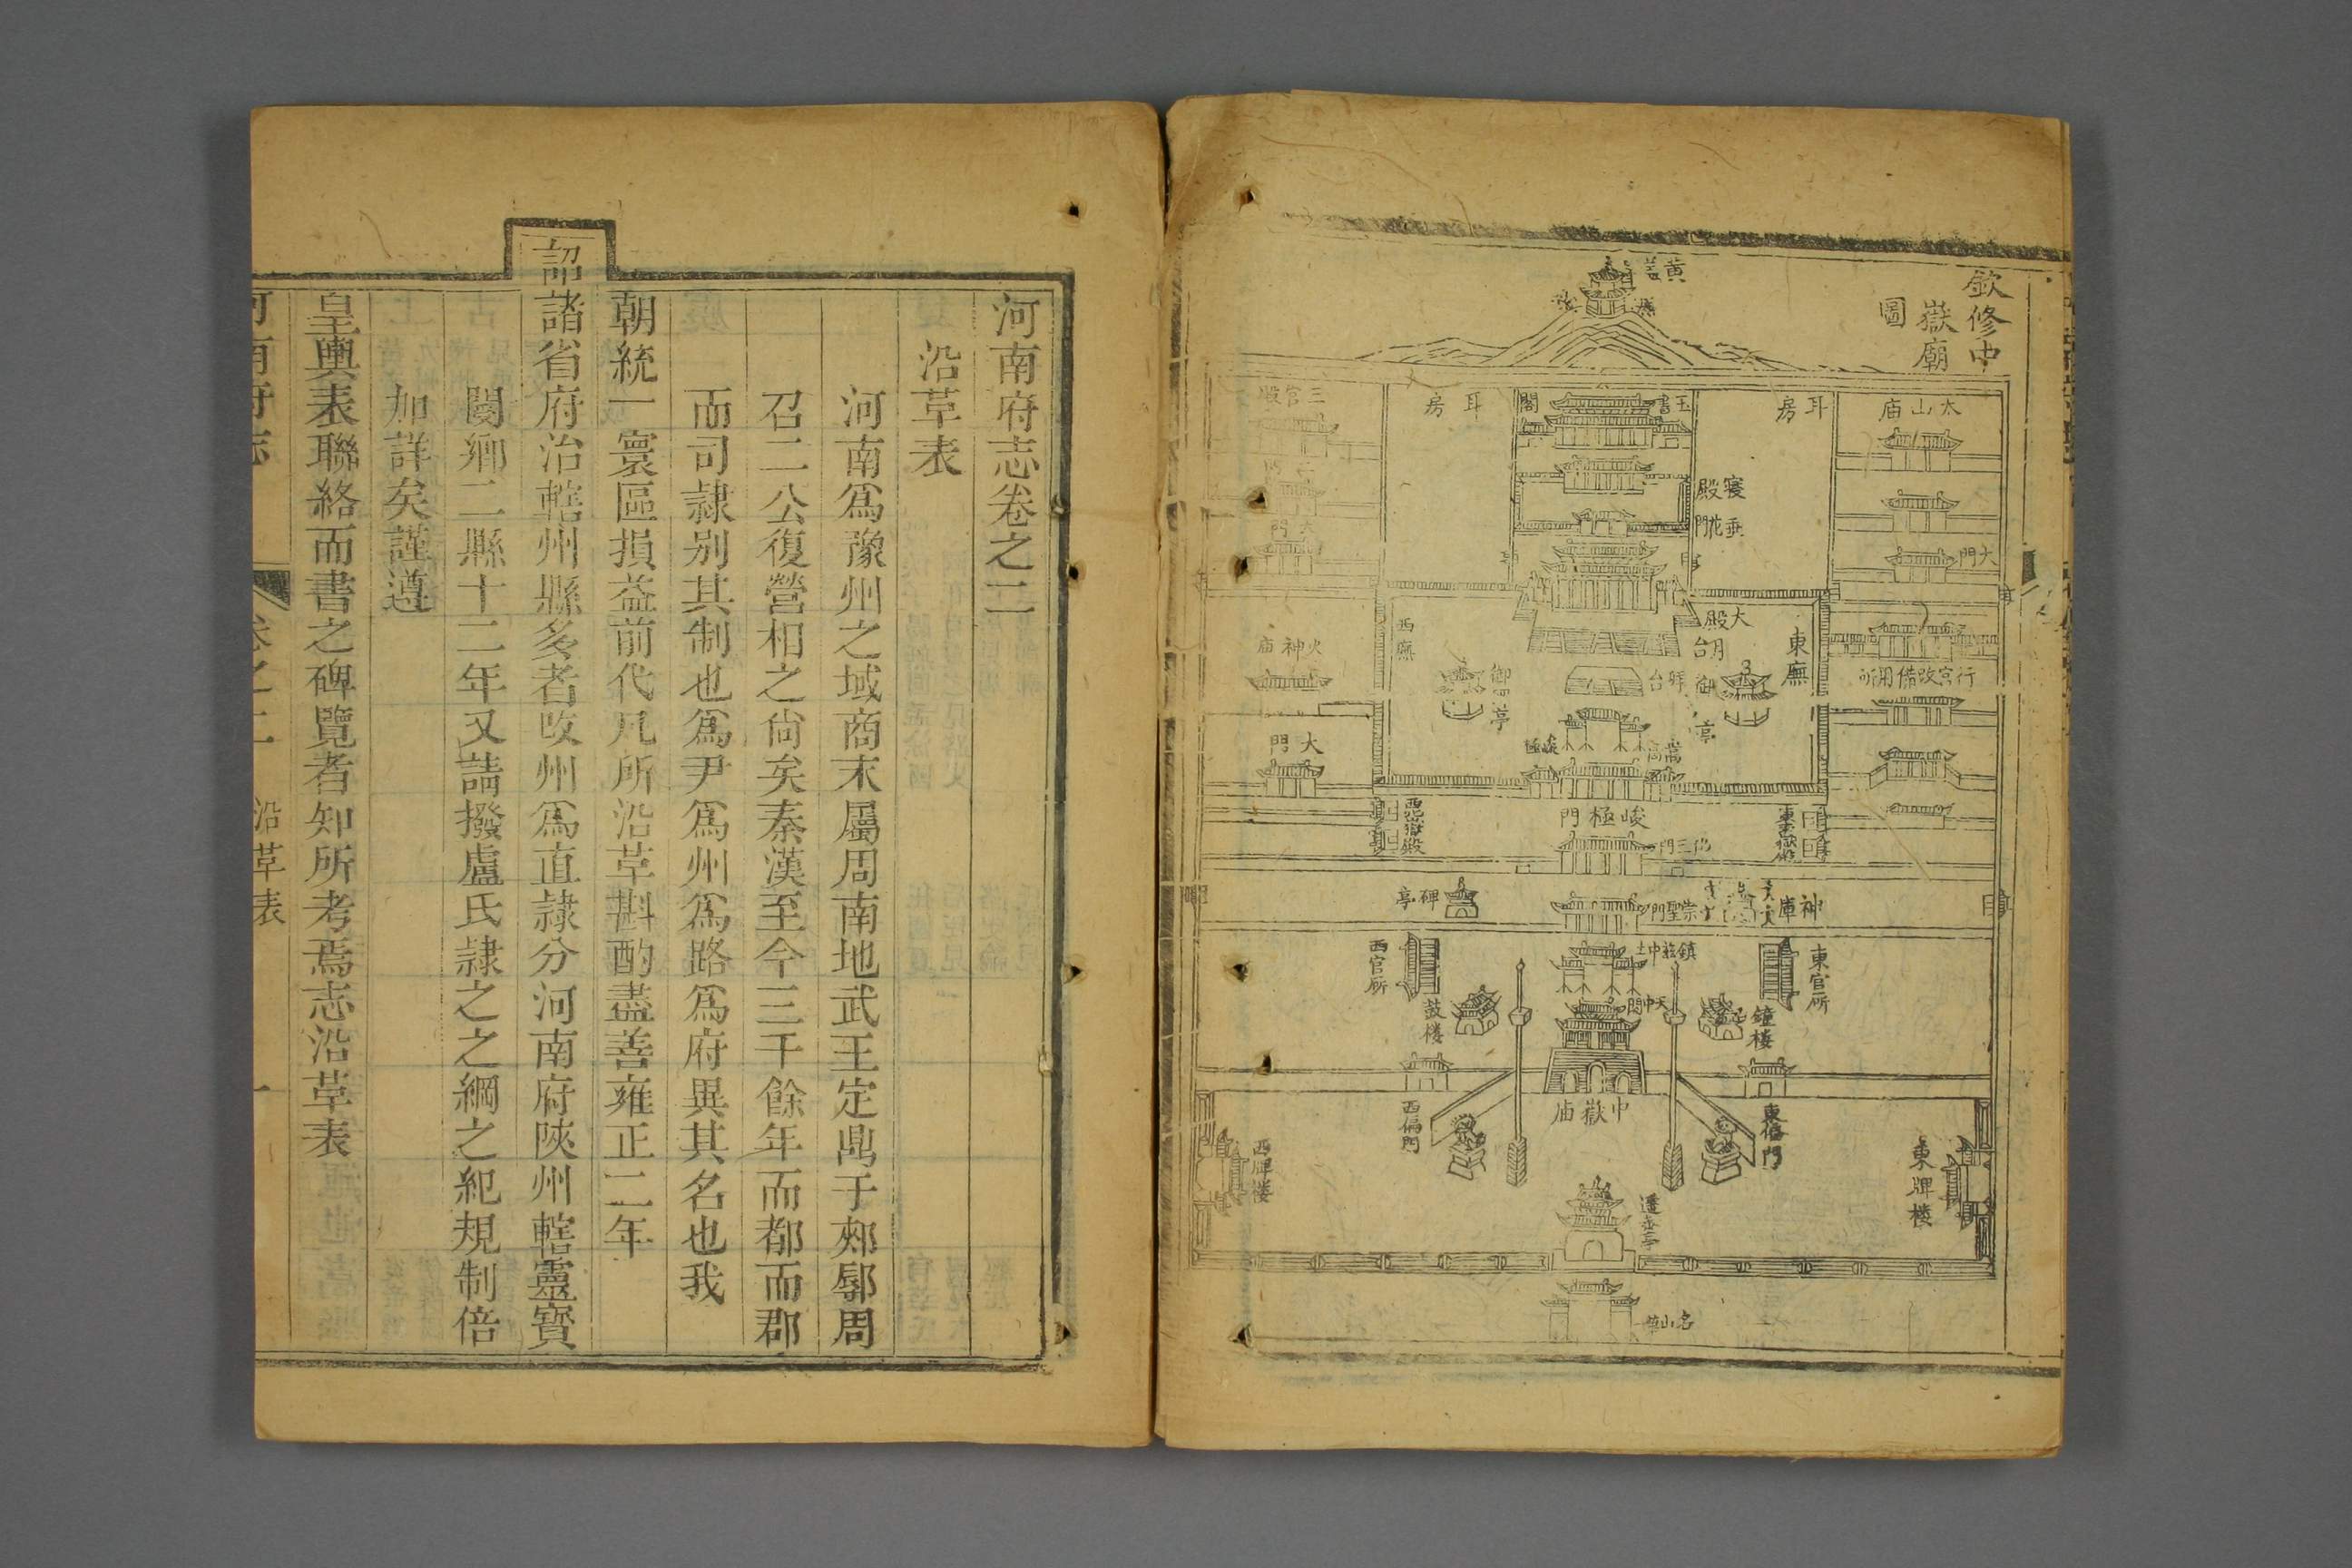 欽修中
嶽廟
圖
黄蓋
太山庙
耳房
玉書
閣
耳房
三官殿
寝殿
垂花門
大門
大門
大殿
月台
東廡
西廡
火神庙
行宫改備用所
拜台
御
亭
御
亭
嵩高
峻極
大門
峻極門
東
西
三門
碑亭
崇聖門
神庫
鎮兹中土
東官所
西官所
天中閣
鐘楼
鼓楼
中嶽庙
東偏門
西偏門
東牌楼
西牌楼
遥参亭
名山
河南府志卷之二
沿革表
河南為豫州之域商末屬周南地武王定鼎于郟鄏周
召二公復營相之尚矣秦漢至今三千餘年而都而郡
而司隷别其制也為尹為州為路為府異其名也我
朝統一寰區損益前代凡所沿革斟酌盡善雍正二年
詔諸省府治轄州縣多者改州為直隷分河南府陝州轄靈寶
閿鄉二縣十二年又請撥盧氏隷之之綱之紀規制倍
加詳矣謹遵
皇輿表聯絡而書之碑覽者知所考焉志沿革表
河南府志
卷之二
沿革表
一